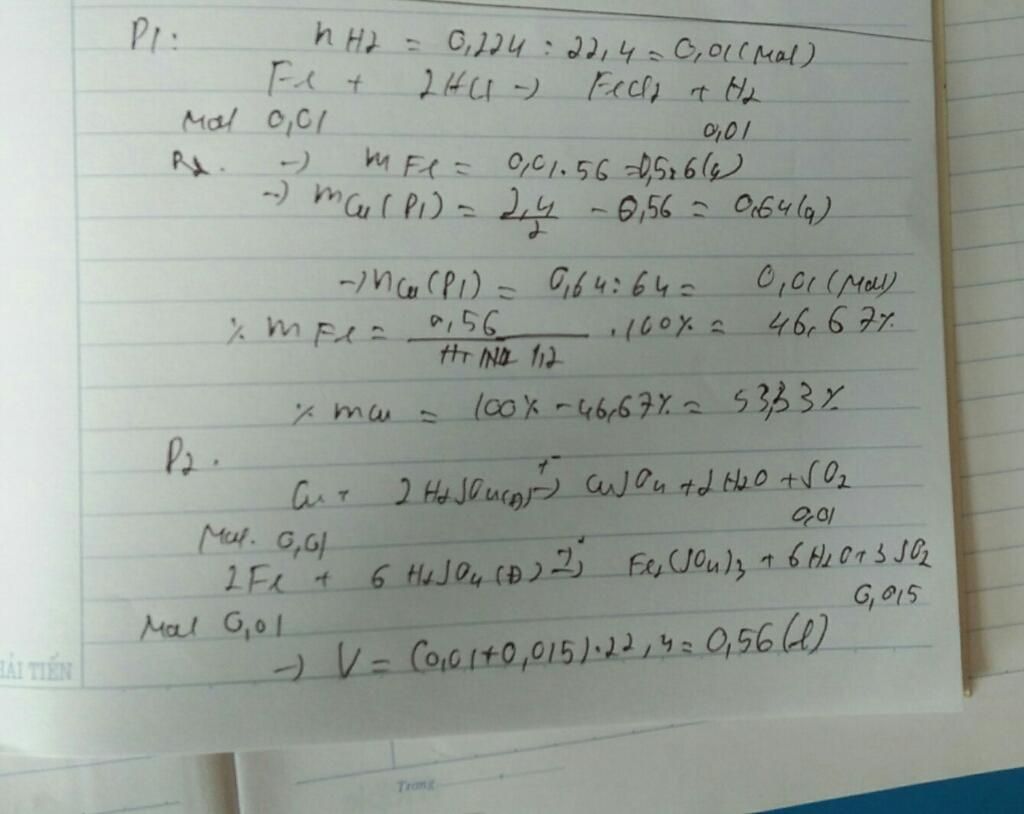 P1: nH2 = 0,224 : 22,4 = 0,01 (mol)
Fe + 2HCl -> FeCl2 + H2
Mol 0,01 0,01
-> mFe = 0,01.56 = 0,56 (g)
-> mCu (P1) = 2,4/2 - 0,56 = 0,64 (g)
-> nCu (P1) = 0,64 : 64 = 0,01 (Mol)
% mFe = 0,56/1,2 . 100% = 46,67%
% mCu = 100% - 46,67% = 53,33%
P2.
Cu + 2H2SO4(Đ) -> CuSO4 + 2H2O + SO2
Mol. 0,01 0,01
2Fe + 6H2SO4 (Đ) -> Fe2(SO4)3 + 6H2O + 3SO2
Mol 0,01 0,015
-> V = (0,01+0,015).22,4 = 0,56 (l)
HẢI TIẾN
Trong